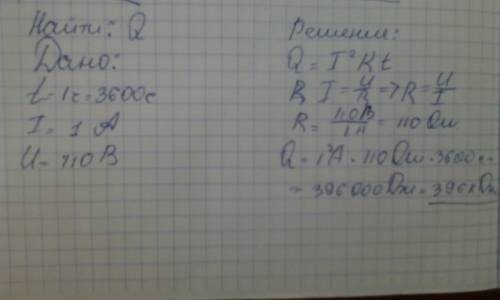 Найти: Q
Дано:
t = 1ч = 3600с
I = 1 А
U = 110 В
Решение:
Q = I²Rt
I = U/R => R = U/I
R = 110В/1А = 110 Ом
Q = 1²А · 110 Ом · 3600с =
= 396000Дж = 396кДж